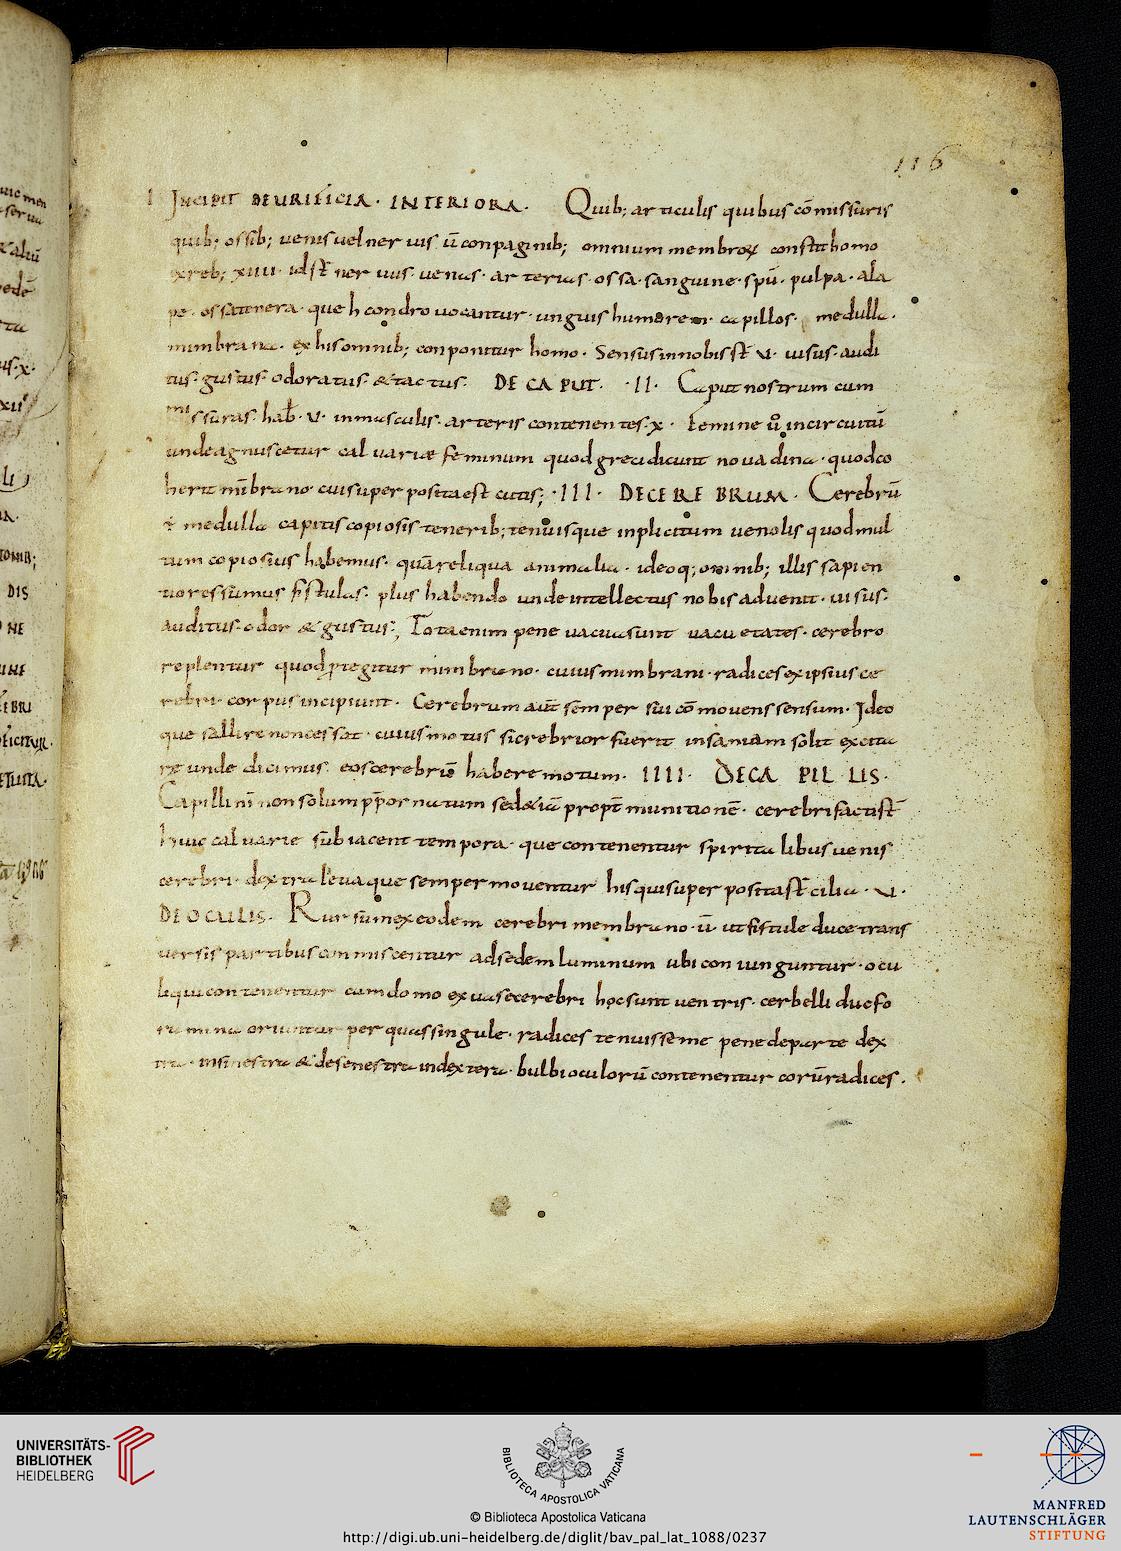 116
I INCIPIT DEURIFICIA · INTERIORA · Quib; articulis quibus cōmissuris
quib; ossib; uenis uel neruis ū conpaginib; omnium membroꝝ constat homo
ex reb; xiiii · id st̄ neruis · uenas · arterias · ossa · sanguine · spū · pulpa · ala
pe · ossa tenera · que hcondro uocantur · unguis humore capillos · medulla ·
mimbrana · ex his omnib; conponitur homo · Sensus in nobis st̄ · v · uisus · audi
tus · gustus · odoratus · & tactus · DE CAPUT · II · Caput nostrum cum
missuras · hab̄ · v · in masculis · arteris contenentes · x · Femine ū in circuitū
unde agnuscetur caluariæ feminum quod greci dicunt nouadina · quodco
herit mībrano · cui super posita est cutis; · III · DE CEREBRUM · Cerebrū
ē medulla capitis copiosis tenerib; tenuisque inplicitum uenolis quod mul
tum copiosius habemus · quā reliqua animalia · ideoq; omnib; illis sapien
tiores sumus fistulas · plus habendo unde intellectus nobis aduenit · uisus ·
auditus · odor & gustus; Tota enim pene uacua sunt uacuetates · cerebro
replentur quod ꝓtegitur mimbrano · cuius mimbrani · radices ex ipsius ce
rebri · corpus incipiunt · Cerebrum aut̄ semper sui cōmouens sensum · Ideo
que sallire non cessat · cuius motus si crebrior fuerit insaniam solit excita
re unde dicimus · eos cerebriū habere motum · IIII · DE CAPILLIS ·
Capilli nī non solum ꝓp ornatum sed &iā propt̄ munitionē · cerebri facti st̄
huic caluarie subiacent tempora · que contenentur spiritalibus uenis
cerebri · dextra leuaque semper mouentur his qui super posita st̄ cilia · v ·
DE OCULIS · Rursum ex eodem cerebri membrano · ū ut fistule duce trans
uersis partibus commiscentur ad sedem luminum ubi coniunguntur · ocu
li qui contenentur cum domo ex uase cerebri hoc sunt uentris · cerbelli due fo
ramina oriuntur per quas singule · radices tenuisseme pene de parte dex
tra · in sinestra & de senestra in dextera · bulbi oculorū contenentur corū radices ·
UNIVERSITÄTS-
BIBLIOTHEK
HEIDELBERG
BIBLIOTECA APOSTOLICA VATICANA
© Biblioteca Apostolica Vaticana
http://digi.ub.uni-heidelberg.de/diglit/bav_pal_lat_1088/0237
MANFRED
LAUTENSCHLÄGER
STIFTUNG